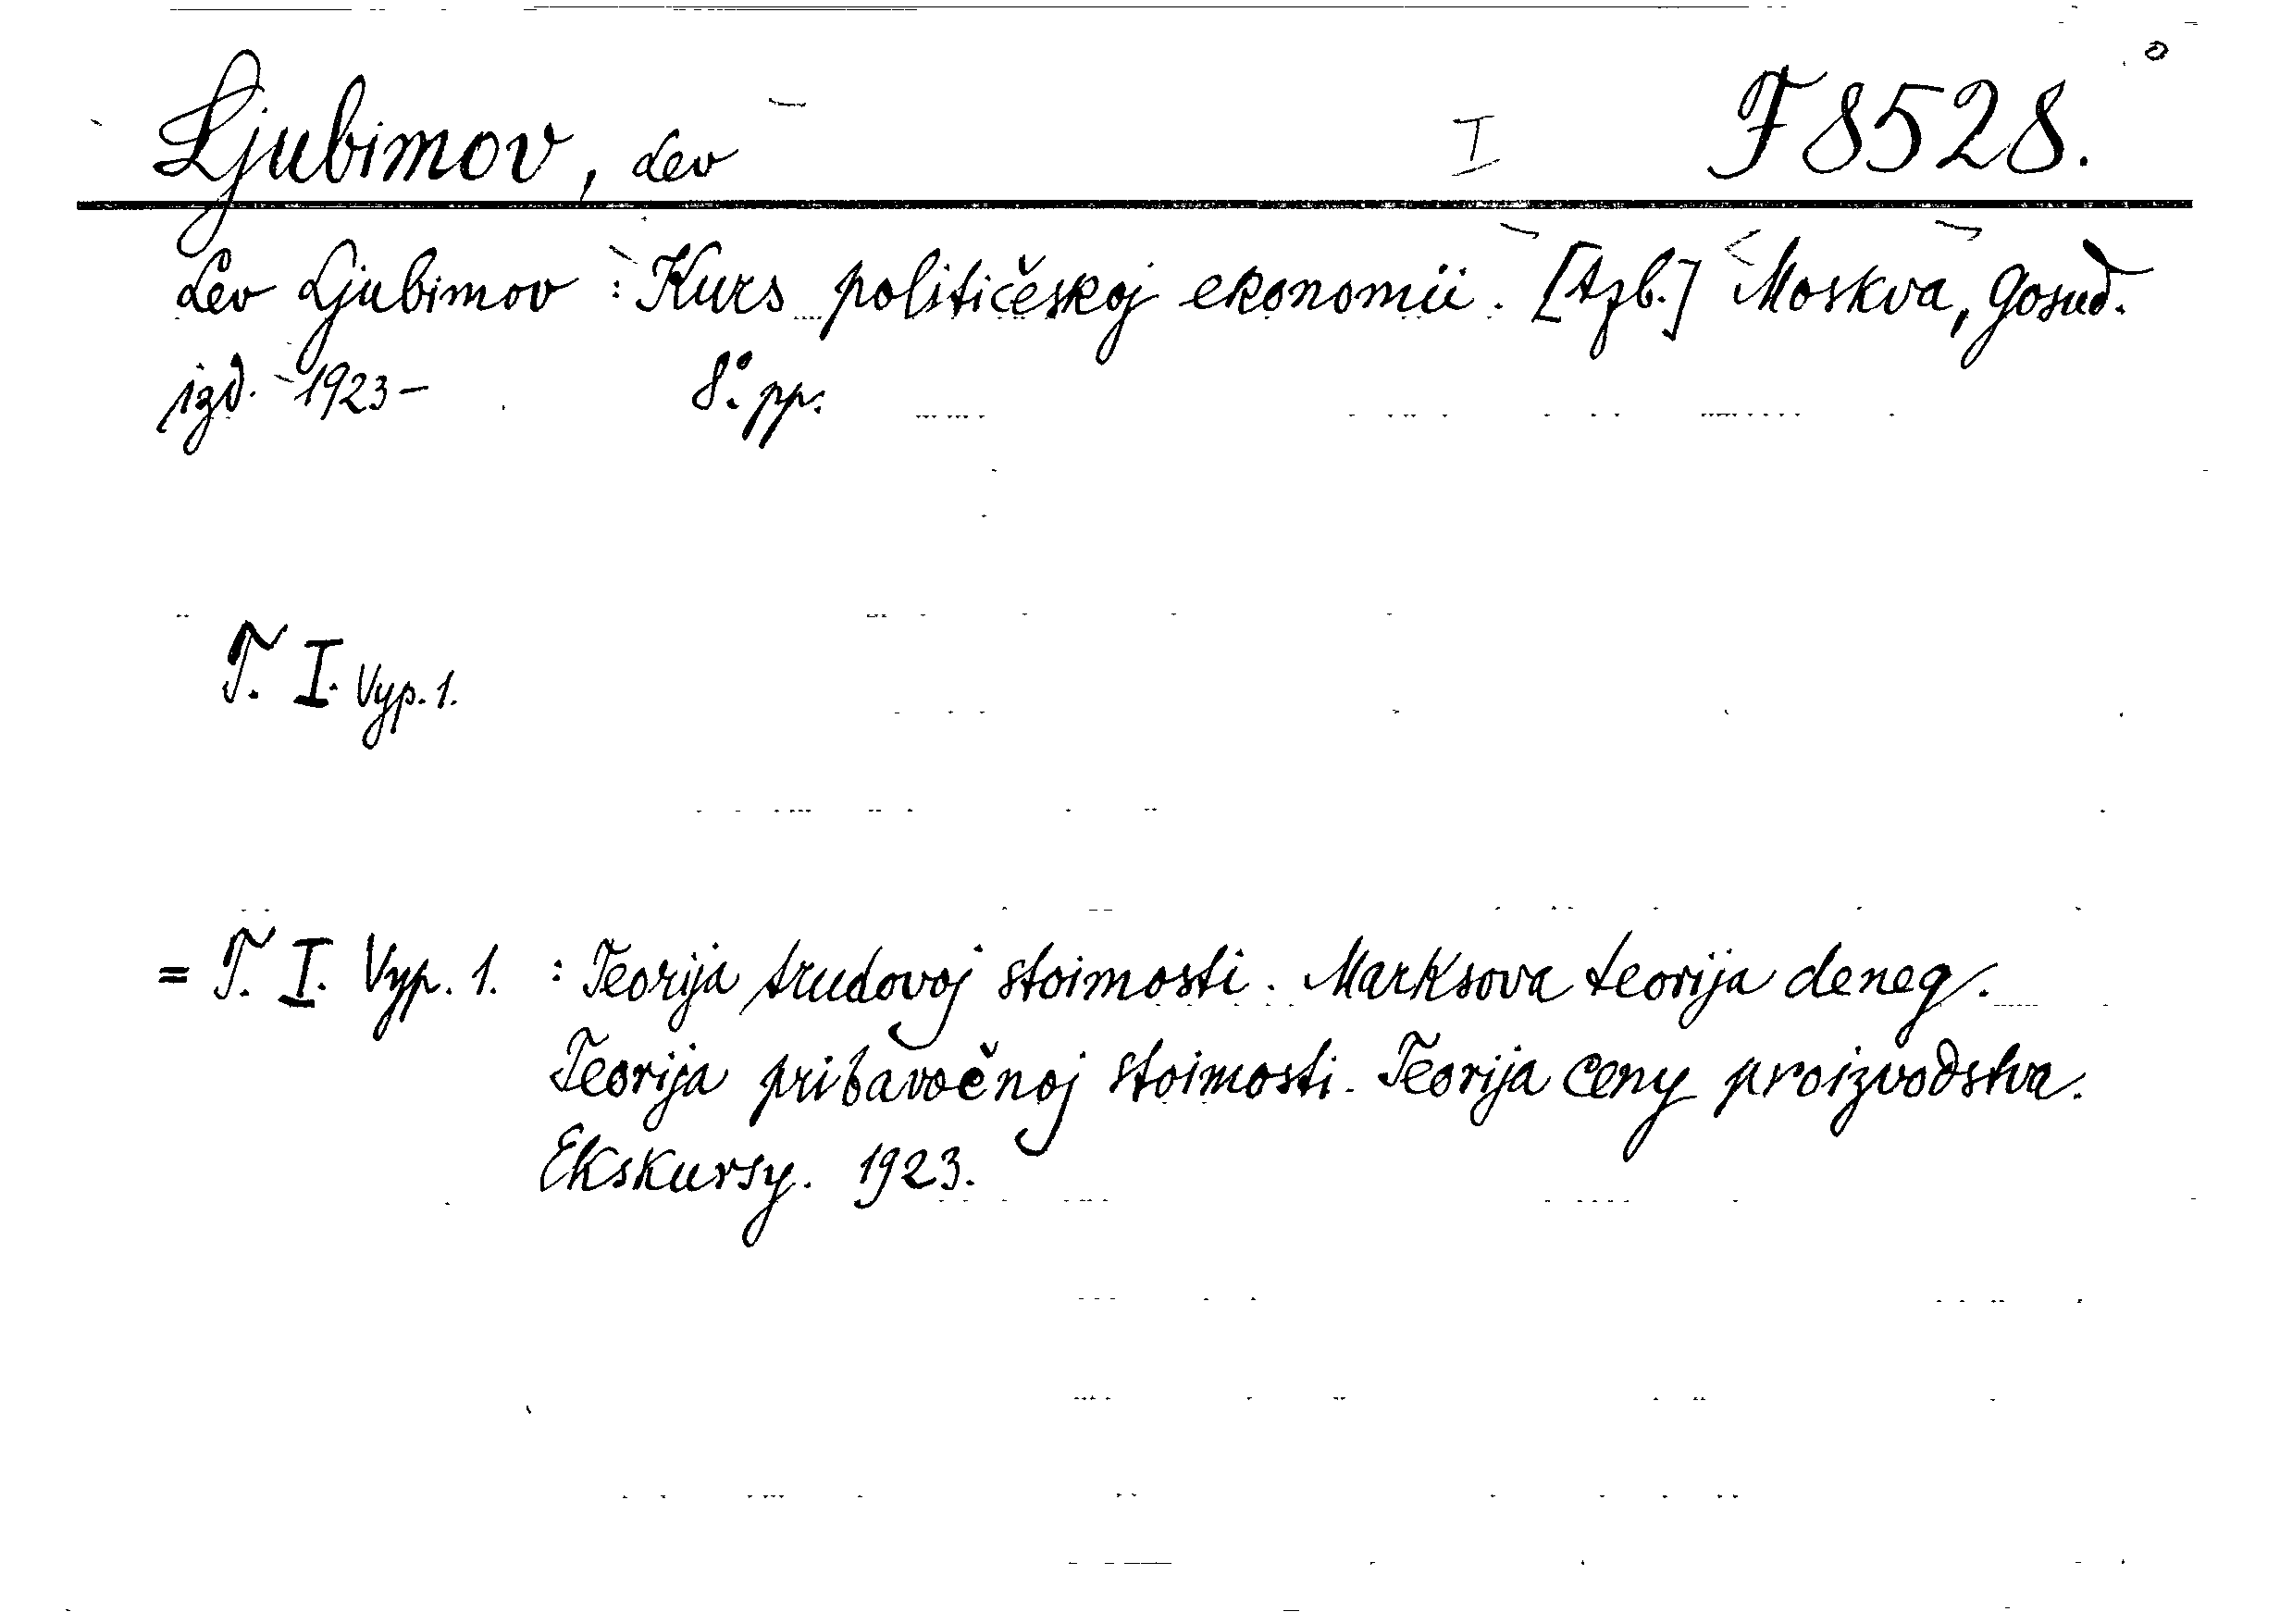 Ljubimov, Lev I F 8528.
Lev Ljubimov : Kurs političeskoj ekonomii. [Azb.] Moskva, Gosud.
izd. 1923- 8° pp.
T. I. Vyp. 1.
= T. I. Vyp. 1. : Teorija trudovoj stoimosti. Marksova teorija deneg.
Teorija pribavočnoj stoimosti. Teorija ceny proizvodstva.
Ekskursy. 1923.